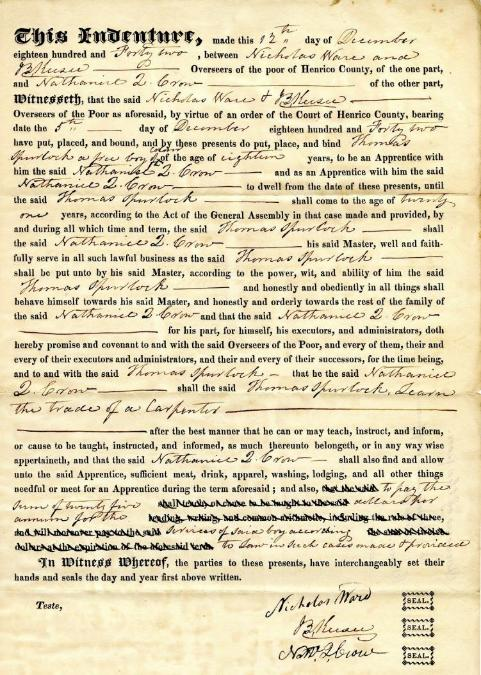 This Indenture, made this 12th day of December
eighteen hundred and Forty two, between Nicholas Ware and
Overseers of the poor of Henrico County, of the one part,
and Nathaniel Q. Crow of the other part,
Witnesseth, that the said Nicholas Ware &
Overseers of the Poor as aforesaid, by virtue of an order of the Court of Henrico County, bearing
date the 5th day of December eighteen hundred and Forty two
have put, placed, and bound, and by these presents do put, place, and bind Thomas
Spurlock a free boy of color of the age of eighteen years, to be an Apprentice with
him the said Nathaniel Q. Crow and as an Apprentice with him the said
Nathaniel Q. Crow to dwell from the date of these presents, until
the said Thomas Spurlock shall come to the age of twenty
one years, according to the Act of the General Assembly in that case made and provided, by
and during all which time and term, the said Thomas Spurlock shall
the said Nathaniel Q. Crow his said Master, well and faith-
fully serve in all such lawful business as the said Thomas Spurlock
shall be put unto by his said Master, according to the power, wit, and ability of him the said
Thomas Spurlock and honestly and obediently in all things shall
behave himself towards his said Master, and honestly and orderly towards the rest of the family of
the said Nathaniel Q. Crow and that the said Nathaniel Q. Crow
for his part, for himself, his executors, and administrators, doth
hereby promise and covenant to and with the said Overseers of the Poor, and every of them, their and
every of their executors and administrators, and their and every of their successors, for the time being,
and to and with the said Thomas Spurlock that he the said Nathaniel
Q. Crow shall the said Thomas Spurlock, Learn
the trade of a Carpenter
after the best manner that he can or may teach, instruct, and inform,
or cause to be taught, instructed, and informed, as much thereunto belongeth, or in any way wise
appertaineth, and that the said Nathaniel Q. Crow shall also find and allow
unto the said Apprentice, sufficient meat, drink, apparel, washing, lodging, and all other things
needful or meet for an Apprentice during the term aforesaid; and also, to pay the
sum of twenty five dollars per
annum for the reading, writing, and common arithmetic, including the rule of three,
services of said boy according
to law in such cases made & provided
In Witness Whereof, the parties to these presents, have interchangeably set their
hands and seals the day and year first above written.
Teste, Nicholas Ward SEAL.
SEAL.
Crow SEAL.